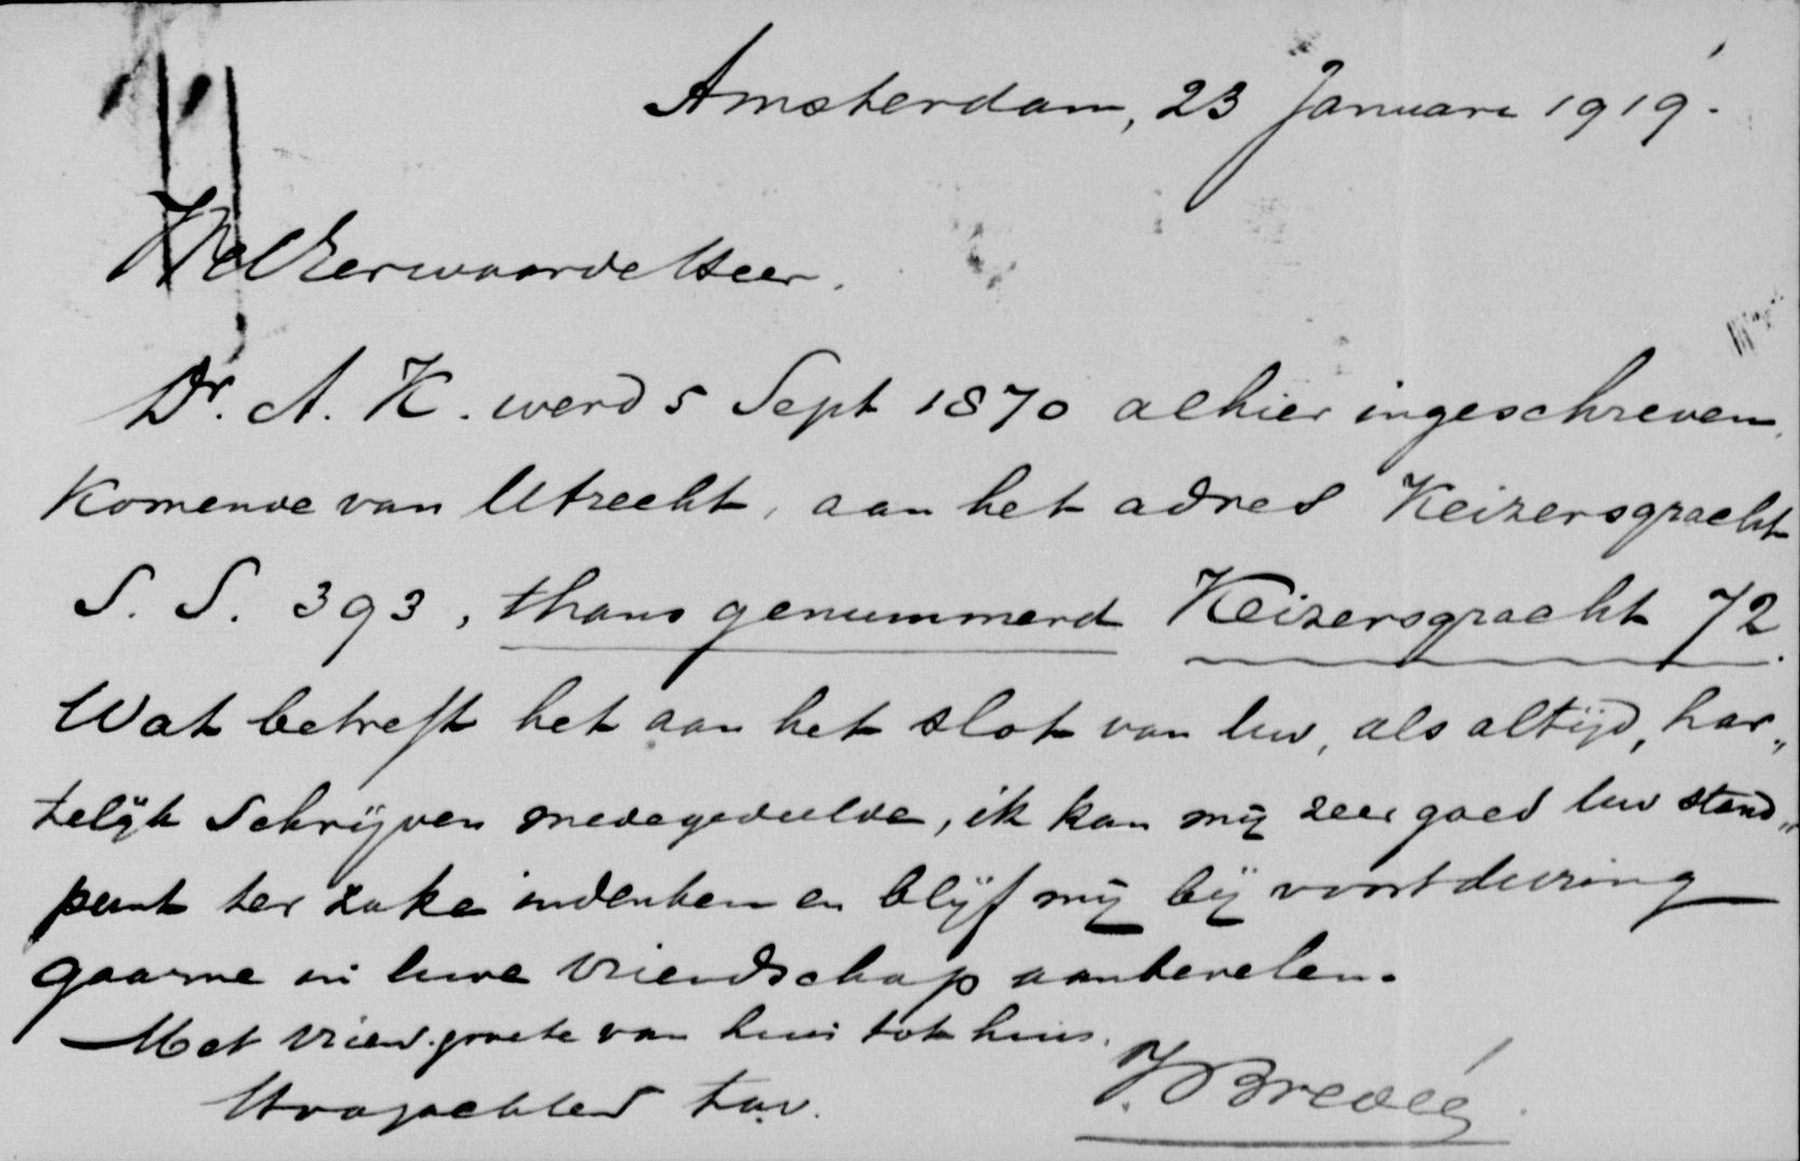 Amsterdam, 23 Januari 1919.
WelEerwaarde Heer.
Dr. A. K. werd 5 Sept 1870 alhier ingeschreven,
Komende van Utrecht, aan het adres Keizersgracht
S. S. 393, thans genummerd Keizersgracht 72.
Wat betreft het aan het slot van Uw, als altijd, har„
telijk Schrijven medegedeelde, ik kan mij zeer goed Uw stand„
punt ter zake indenken en blijf mij bij voortduring
gaarne in Uwe vriendschap aanbevelen.
Met vriend. groete van huis tot huis.
Hoogachtend t.a.v. J. Bredée